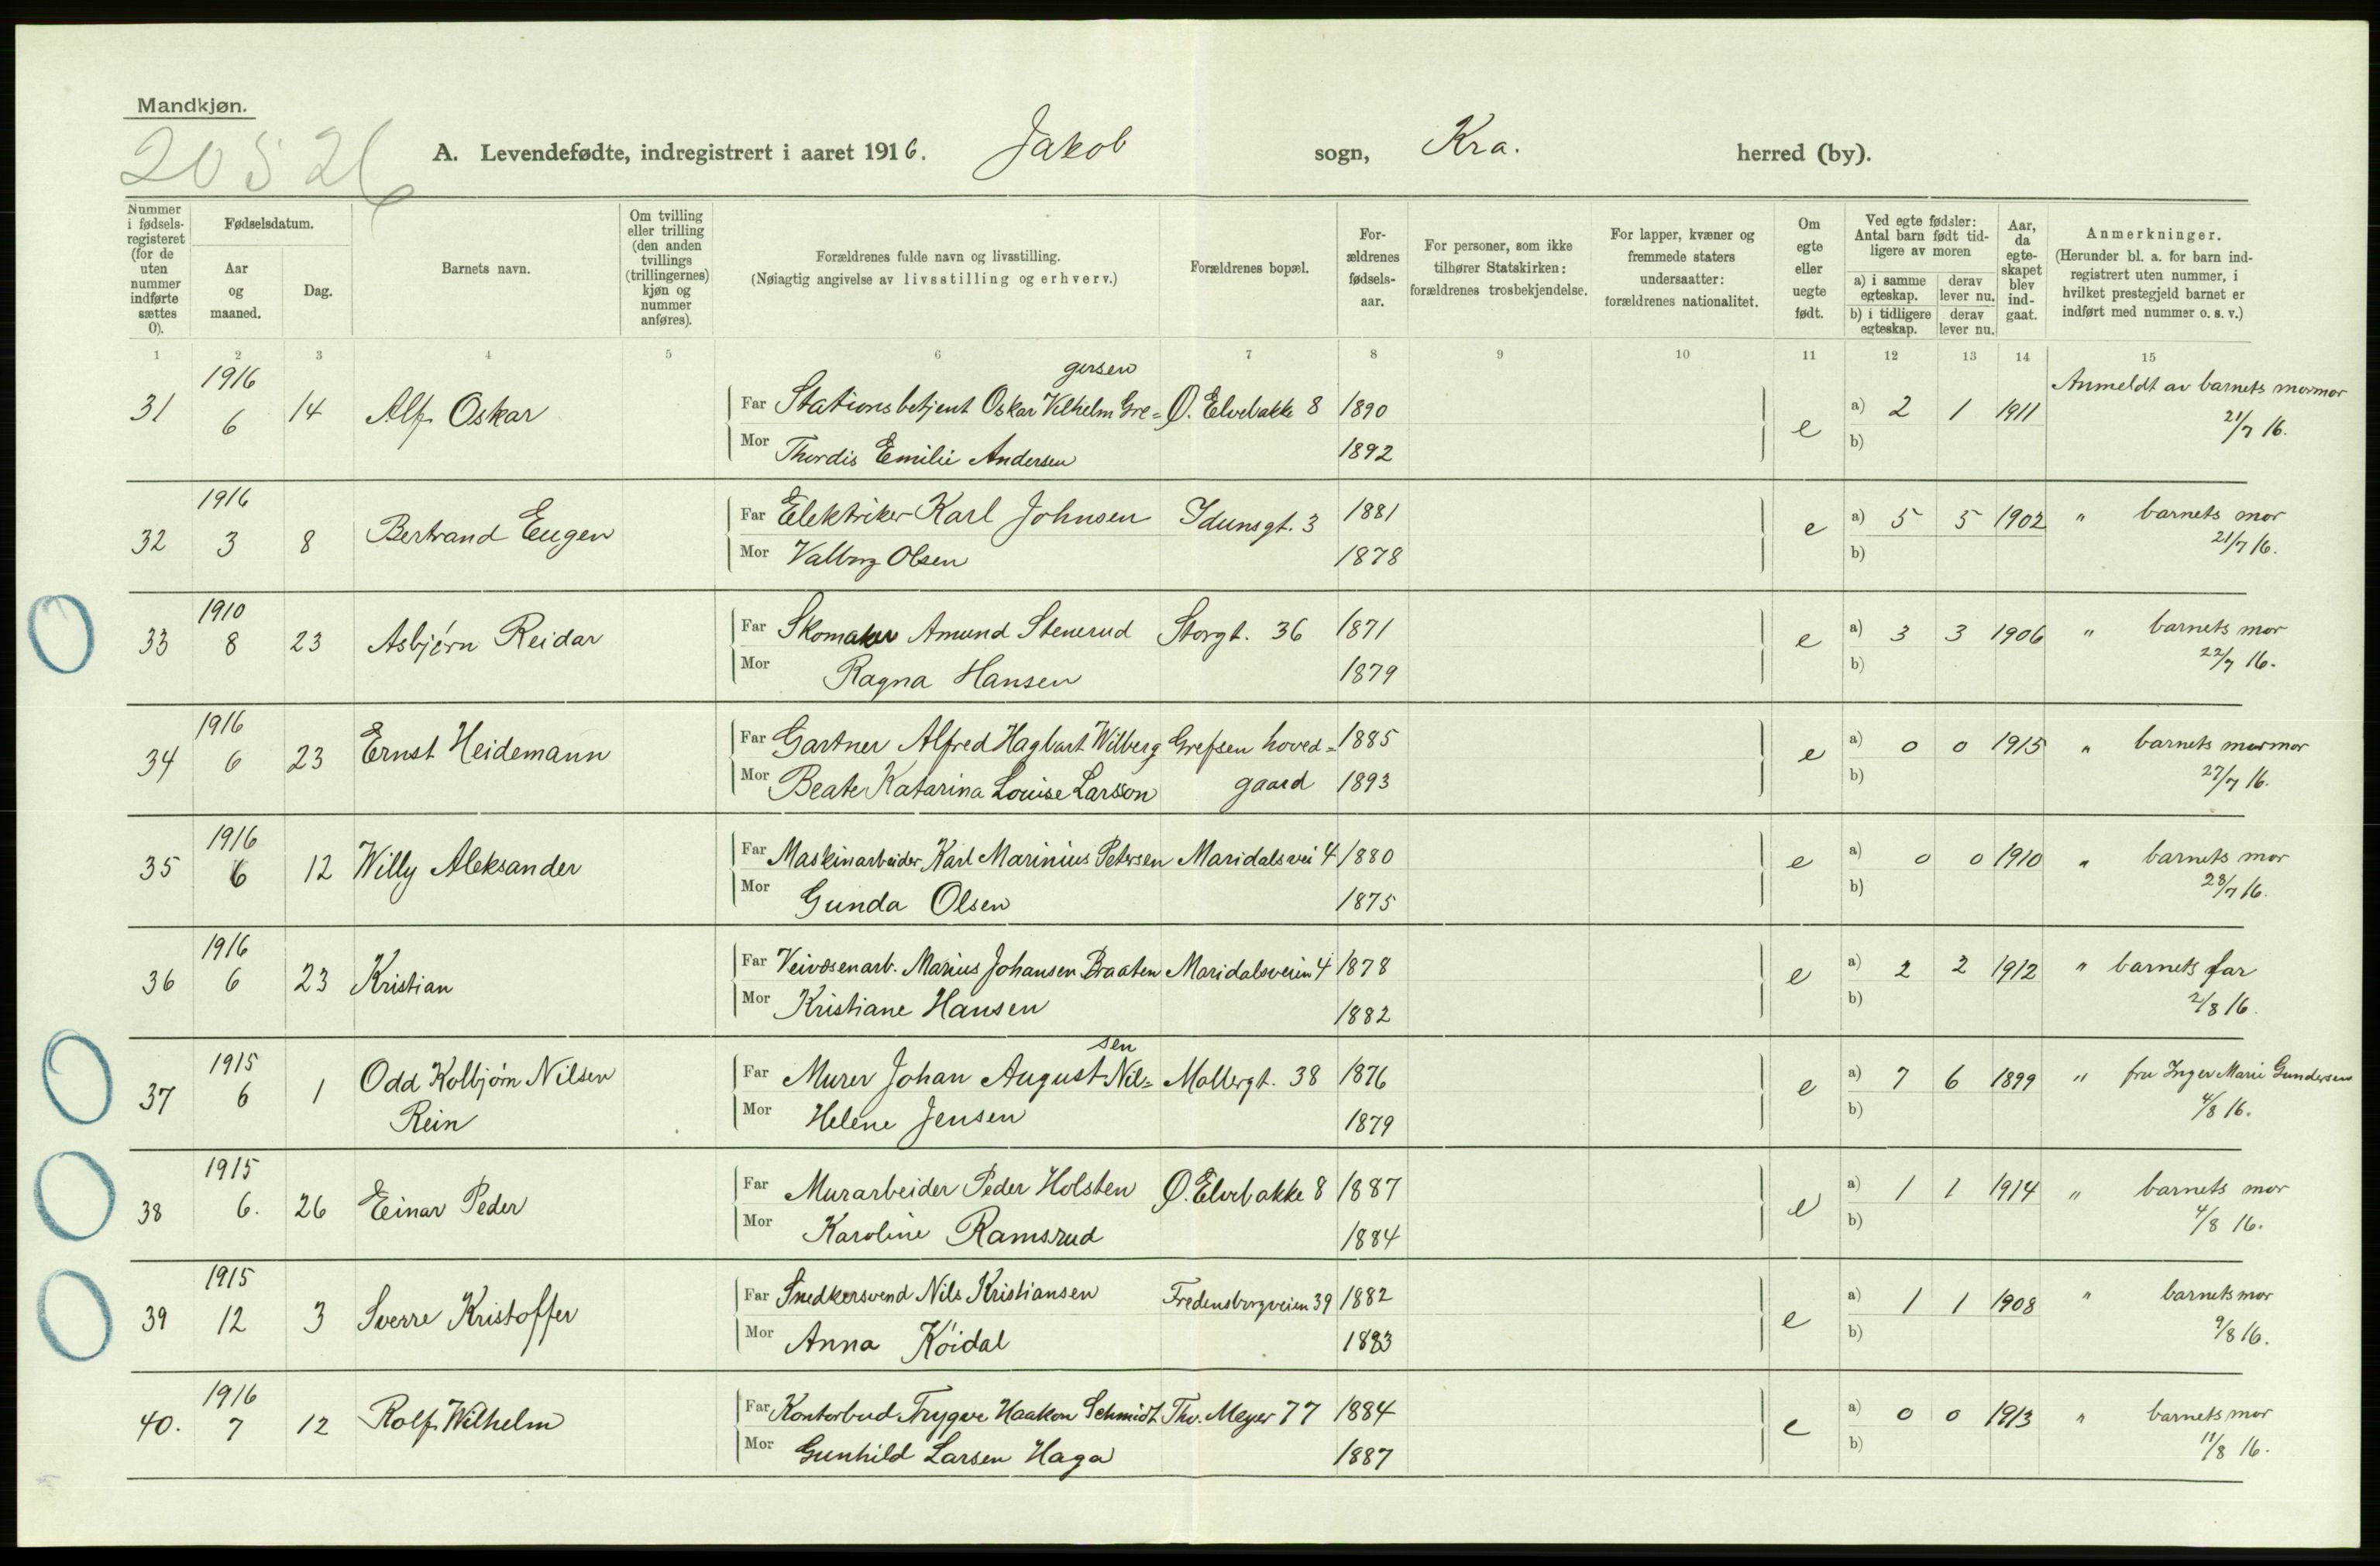 Mandkjøn.
20526
A. Levendefødte, indregistrert i aaret 1916. Jakob sogn, Kra. herred (by).
Nummer i fødsels-registeret (for de uten nummer indførte sættes 0).
Fødselsdatum.
Aar og maaned.
Dag.
Barnets navn.
Om tvilling eller trilling (den anden tvillings (trillingernes) kjøn og nummer anføres).
Forældrenes fulde navn og livsstilling.
(Nøiagtig angivelse av livsstilling og erhverv.)
Forældrenes bopæl.
For-ældrenes fødsels-aar.
For personer, som ikke tilhører Statskirken: forældrenes trosbekjendelse.
For lapper, kvæner og fremmede staters undersaatter: forældrenes nationalitet.
Om egte eller uegte født.
Ved egte fødsler: Antal barn født tid-ligere av moren
a) i samme egteskap. derav lever nu.
b) i tidligere egteskap. derav lever nu.
Aar, da egte-skapet blev ind-gaat.
Anmerkninger.
(Herunder bl. a. for barn ind-registrert uten nummer, i hvilket prestegjeld barnet er indført med nummer o. s. v.)
1 2 3 4 5 6 7 8 9 10 11 12 13 14 15
1916 gersen Anmeldt av barnets mormor
31 6 14 Alf Oskar Far Stationsbetjent Oskar Vilhelm Gre= Ø. Elvebakke 8 1890 e a) 2 1 1911 21/7 16.
Mor Thordis Emilie Andersen 1892 b)
1916
32 3 8 Bertrand Eugen Far Elektriker Karl Johnsen Idunsgt. 3 1881 e a) 5 5 1902 " barnets mor
Mor Valborg Olsen 1878 b) 21/7 16.
1910
33 8 23 Asbjørn Reidar Far Skomaker Amund Stenerud Storgt. 36 1871 e a) 3 3 1906 " barnets mor
Mor Ragna Hansen 1879 b) 22/7 16.
1916
34 6 23 Ernst Heidemann Far Gartner Alfred Hagbart Wilberg Grefsen hoved= 1885 e a) 0 0 1915 " barnets mormor
Mor Beate Katarina Louise Larsson gaard 1893 b) 27/7 16.
1916
35 6 12 Willy Aleksander Far Maskinarbeider Karl Marinius Petersen Maridalsvei 4 1880 e a) 0 0 1910 " barnets mor
Mor Gunda Olsen 1875 b) 28/7 16.
1916
36 6 23 Kristian Far Veivæsenarb. Marius Johansen Braaten Maridalsveien 4 1878 e a) 2 2 1912 " barnets far
Mor Kristiane Hansen 1882 b) 2/8 16.
1915 sen
37 6 1 Odd Kolbjørn Nilsen Far Murer Johan August Nil= Mollergt. 38 1876 e a) 7 6 1899 " fru Inger Marie Gundersen
Rein Mor Helene Jensen 1879 b) 4/8 16.
1915
38 6. 26 Einar Peder Far Murarbeider Peder Holsten Ø. Elvebakke 8 1887 e a) 1 1 1914 " barnets mor
Mor Karoline Ramsrud 1884 b) 4/8 16.
1915
39 12 3 Sverre Kristoffer Far Snedkersvend Nils Kristiansen Fredensborgveien 39 1882 e a) 1 1 1908 " barnets mor
Mor Anna Köidal 1883 b) 9/8 16.
1916
40. 7 12 Rolf Wilhelm Far Kontorbud Trygve Haakon Schmidt Thv. Meyer 77 1884 e a) 0 0 1913 " barnets mor
Mor Gunhild Larsen Haga 1887 b) 11/8 16.